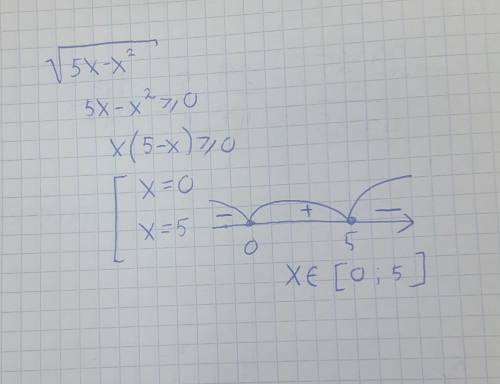 √(5x-x²)
5x-x²⩾0
x(5-x)⩾0
[ x=0
x=5
− + −
0 5
x∈[0;5]